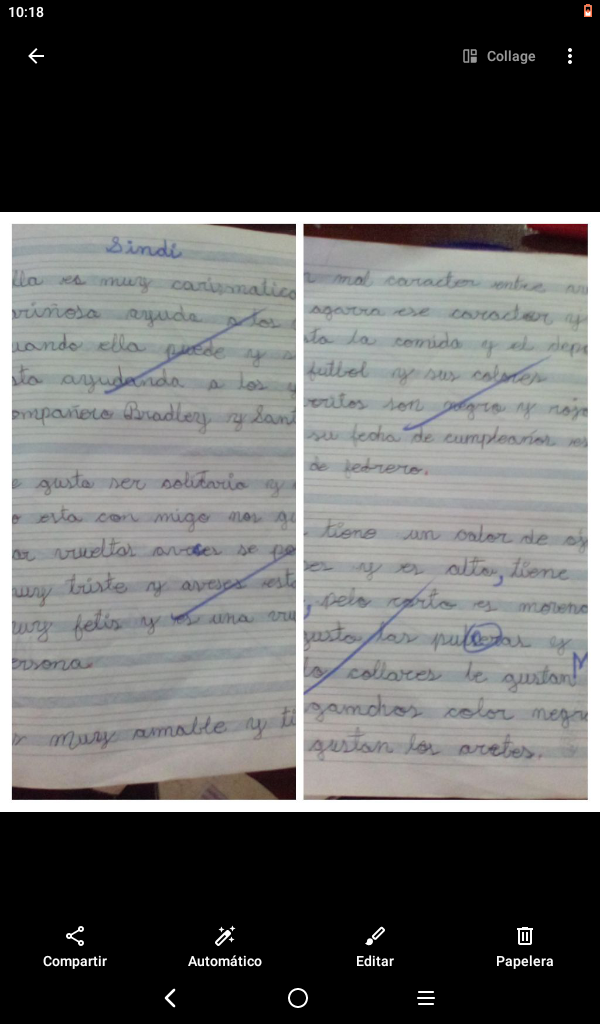 10:18
Collage
Sindi
lla es muy carismatico
riñosa ayuda a los
uando ella puede y s
ta ayudanda a los y
ompañero Bradley y Sant
e gusta ser solitaria y
o esta con migo nos gu
ar vueltas aveces se po
muy triste y aveses esta
muy felis y es una
ersona
s muy amable y ti
mal caracter entre
agarra ese caracter y
ta la comida y el depo
futbol y sus colores
oritos son negro y rojo
su fecha de cumpleaños es
de fedrero.
tiene un color de oj
es y es alto, tiene
, pelo corto es moreno
gusta las pulseras y
collares le gustan
ganchos color negro
gustan los aretes.
Compartir
Automático
Editar
Papelera